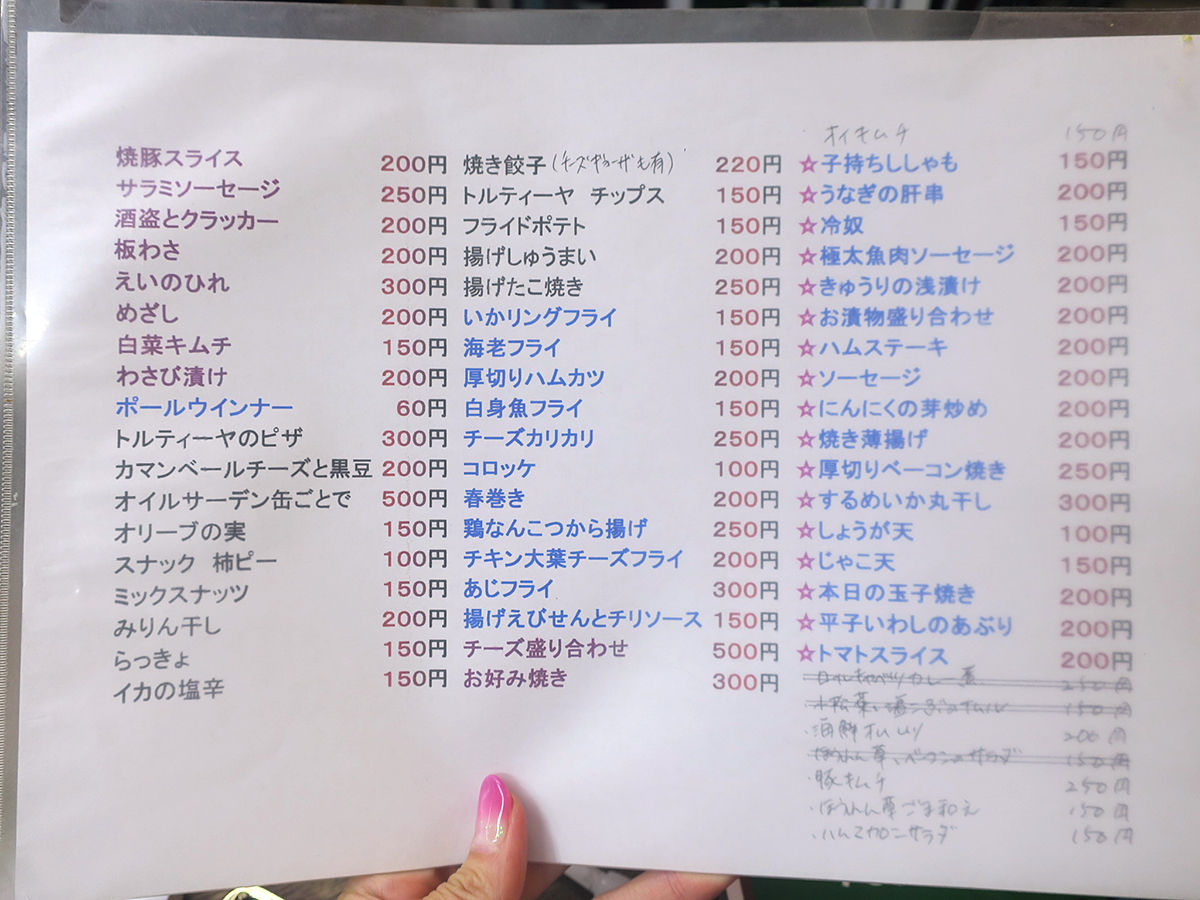 焼豚スライス 200円
サラミソーセージ 250円
酒盗とクラッカー 200円
板わさ 200円
えいのひれ 300円
めざし 200円
白菜キムチ 150円
わさび漬け 200円
ポールウインナー 60円
トルティーヤのピザ 300円
カマンベールチーズと黒豆 200円
オイルサーデン缶ごとで 500円
オリーブの実 150円
スナック 柿ピー 100円
ミックスナッツ 150円
みりん干し 200円
らっきょ 150円
イカの塩辛 150円
焼き餃子(チーズギョーザも有) 220円
トルティーヤ チップス 150円
フライドポテト 150円
揚げしゅうまい 200円
揚げたこ焼き 250円
いかリングフライ 150円
海老フライ 150円
厚切りハムカツ 200円
白身魚フライ 150円
チーズカリカリ 250円
コロッケ 100円
春巻き 200円
鶏なんこつから揚げ 250円
チキン大葉チーズフライ 200円
あじフライ 300円
揚げえびせんとチリソース 150円
チーズ盛り合わせ 500円
お好み焼き 300円
オイキムチ 150円
☆子持ちししゃも 150円
☆うなぎの肝串 200円
☆冷奴 150円
☆極太魚肉ソーセージ 200円
☆きゅうりの浅漬け 200円
☆お漬物盛り合わせ 200円
☆ハムステーキ 200円
☆ソーセージ 200円
☆にんにくの芽炒め 200円
☆焼き薄揚げ 200円
☆厚切りベーコン焼き 250円
☆するめいか丸干し 300円
☆しょうが天 100円
☆じゃこ天 150円
☆本日の玉子焼き 200円
☆平子いわしのあぶり 200円
☆トマトスライス 200円
250円
150円
・海鮮オムレツ 200円
ほうれん草、ベーコンのサラダ 150円
・豚キムチ 250円
・ほうれん草ごま和え 150円
・ハムマカロニサラダ 150円